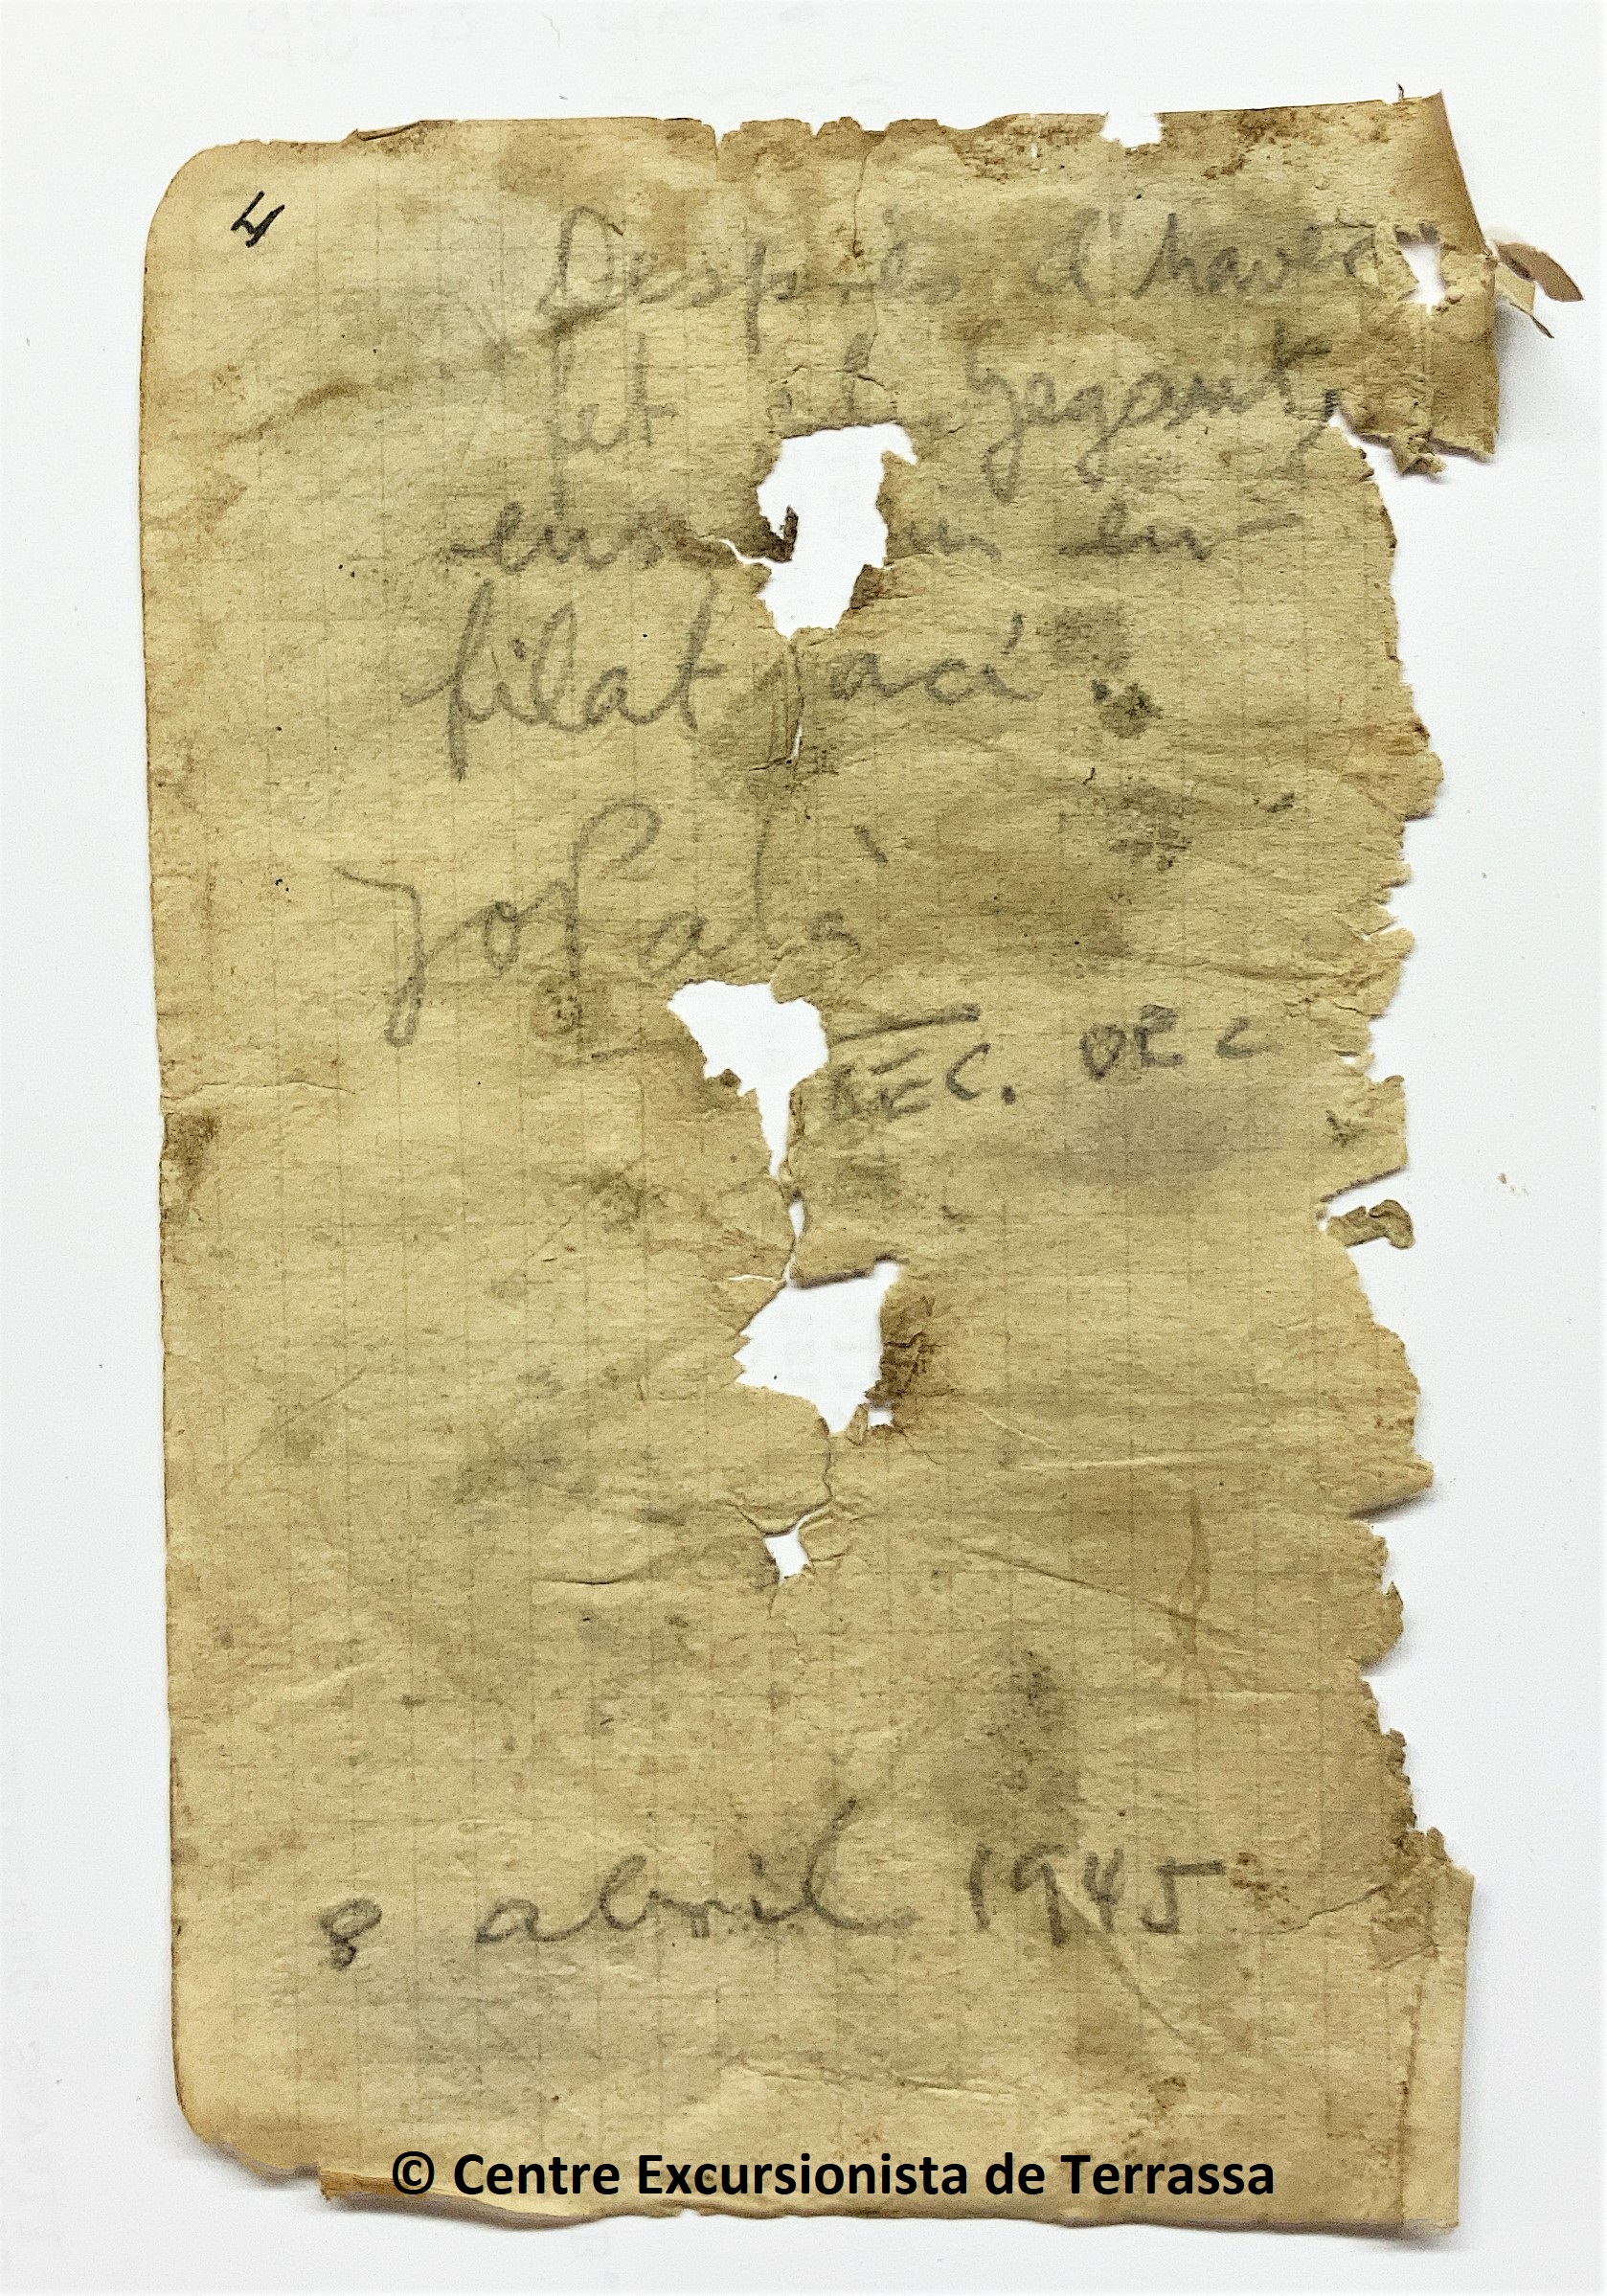 4
Després d'haver
fet el Gegant,
ens en-
filat ací.
Jo Palà
SEC. DE C
8 abril 1945
© Centre Excursionista de Terrassa